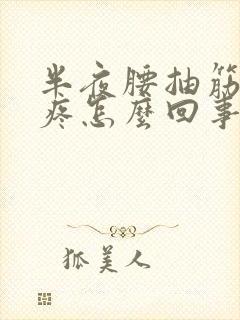 半夜腰抽筋
疼怎麼回事
狐美人